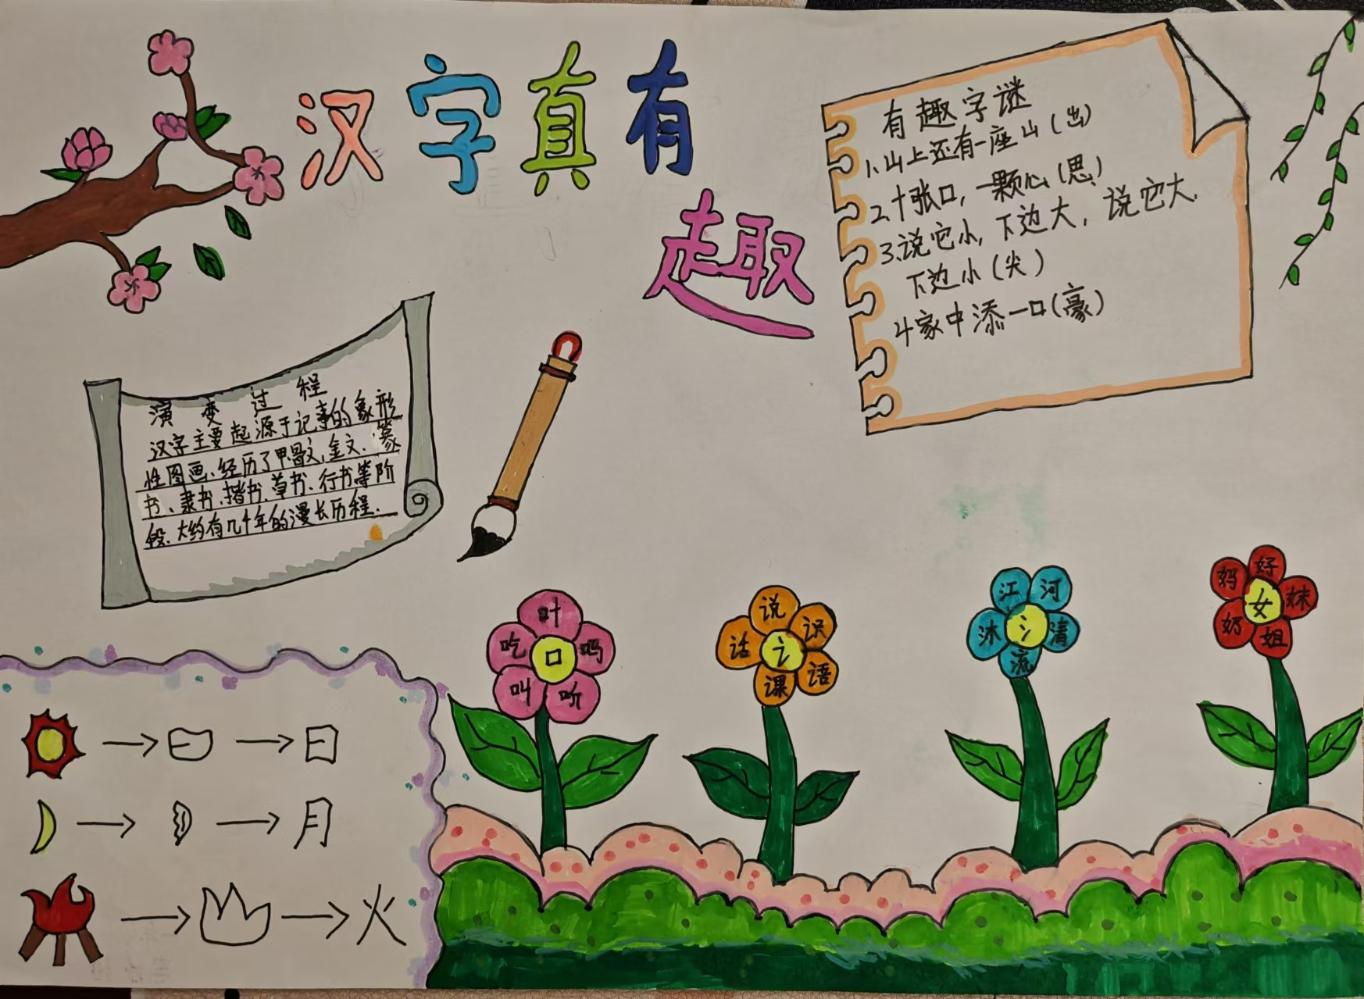 汉字真有
趣
有趣字谜
1.山上还有一座山(出)
2.十张口,一颗心(思)
3.说它小,下边大,说它大.
下边小(尖)
4家中添一口(豪)
演变过程
汉字主要起源于记事的象形
性图画、经历了甲骨文,金文、篆
书、隶书、楷书、草书、行书等阶
段、大约有几千年的漫长历程.
叶
吃
口
吗
叫
听
说
话
讠
识
课
语
江
河
沐
氵
清
流
好
妈
妹
女
奶
姐
日
月
火